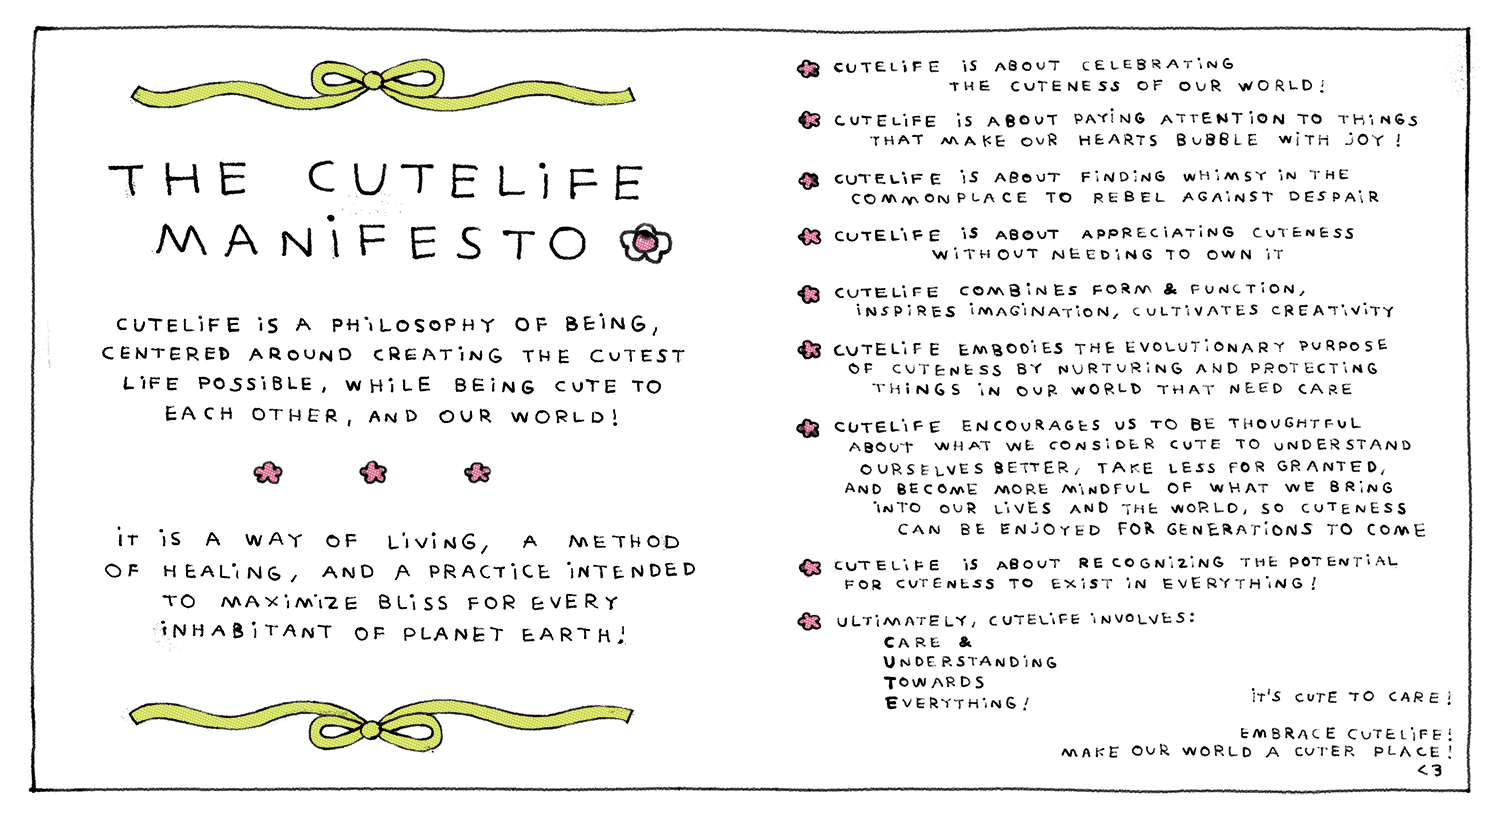 THE CUTELiFE
MANiFESTO
CUTELiFE iS A PHiLOSOPHY OF BEiNG,
CENTERED AROUND CREATiNG THE CUTEST
LiFE POSSiBLE, WHiLE BEiNG CUTE TO
EACH OTHER, AND OUR WORLD!
iT iS A WAY OF LiViNG, A METHOD
OF HEALiNG, AND A PRACTiCE iNTENDED
TO MAXiMiZE BLiSS FOR EVERY
iNHABiTANT OF PLANET EARTH!
CUTELiFE iS ABOUT CELEBRATiNG
THE CUTENESS OF OUR WORLD!
CUTELiFE iS ABOUT PAYiNG ATTENTiON TO THiNGS
THAT MAKE OUR HEARTS BUBBLE WiTH JOY!
CUTELiFE iS ABOUT FiNDiNG WHiMSY iN THE
COMMONPLACE TO REBEL AGAiNST DESPAiR
CUTELiFE iS ABOUT APPRECiATiNG CUTENESS
WiTHOUT NEEDiNG TO OWN iT
CUTELiFE COMBiNES FORM & FUNCTiON,
iNSPiRES iMAGiNATiON, CULTiVATES CREATiViTY
CUTELiFE EMBODiES THE EVOLUTiONARY PURPOSE
OF CUTENESS BY NURTURiNG AND PROTECTiNG
THiNGS iN OUR WORLD THAT NEED CARE
CUTELiFE ENCOURAGES US TO BE THOUGHTFUL
ABOUT WHAT WE CONSiDER CUTE TO UNDERSTAND
OURSELVES BETTER, TAKE LESS FOR GRANTED,
AND BECOME MORE MiNDFUL OF WHAT WE BRiNG
iNTO OUR LiVES AND THE WORLD, SO CUTENESS
CAN BE ENJOYED FOR GENERATiONS TO COME
CUTELiFE iS ABOUT RECOGNiZiNG THE POTENTiAL
FOR CUTENESS TO EXiST iN EVERYTHiNG!
ULTiMATELY, CUTELiFE iNVOLVES:
CARE &
UNDERSTANDiNG
TOWARDS
EVERYTHiNG!
iT'S CUTE TO CARE!
EMBRACE CUTELiFE!
MAKE OUR WORLD A CUTER PLACE!
<3